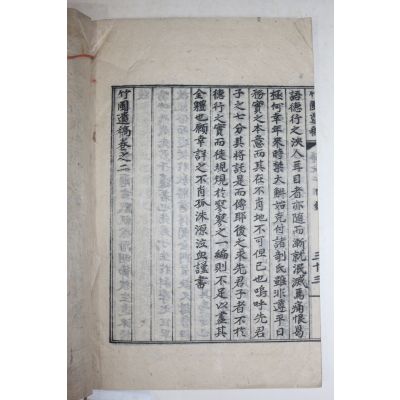 竹圃遺稿
三十三
語德行之浹人耳目者亦隨而漸就泯滅焉痛恨曷
極何幸年來時禁大解始克付諸剞氏雖非遵平日
務實之本意而其在不肖地不可但已也嗚呼先君
子之七分其將託是而傳耶後之求先君子者不於
德行之實而徒規規於寥寥之一編則不足以盡其
全體也願幸詳之不肖孤洙源泣血謹書
竹圃遺稿卷之二